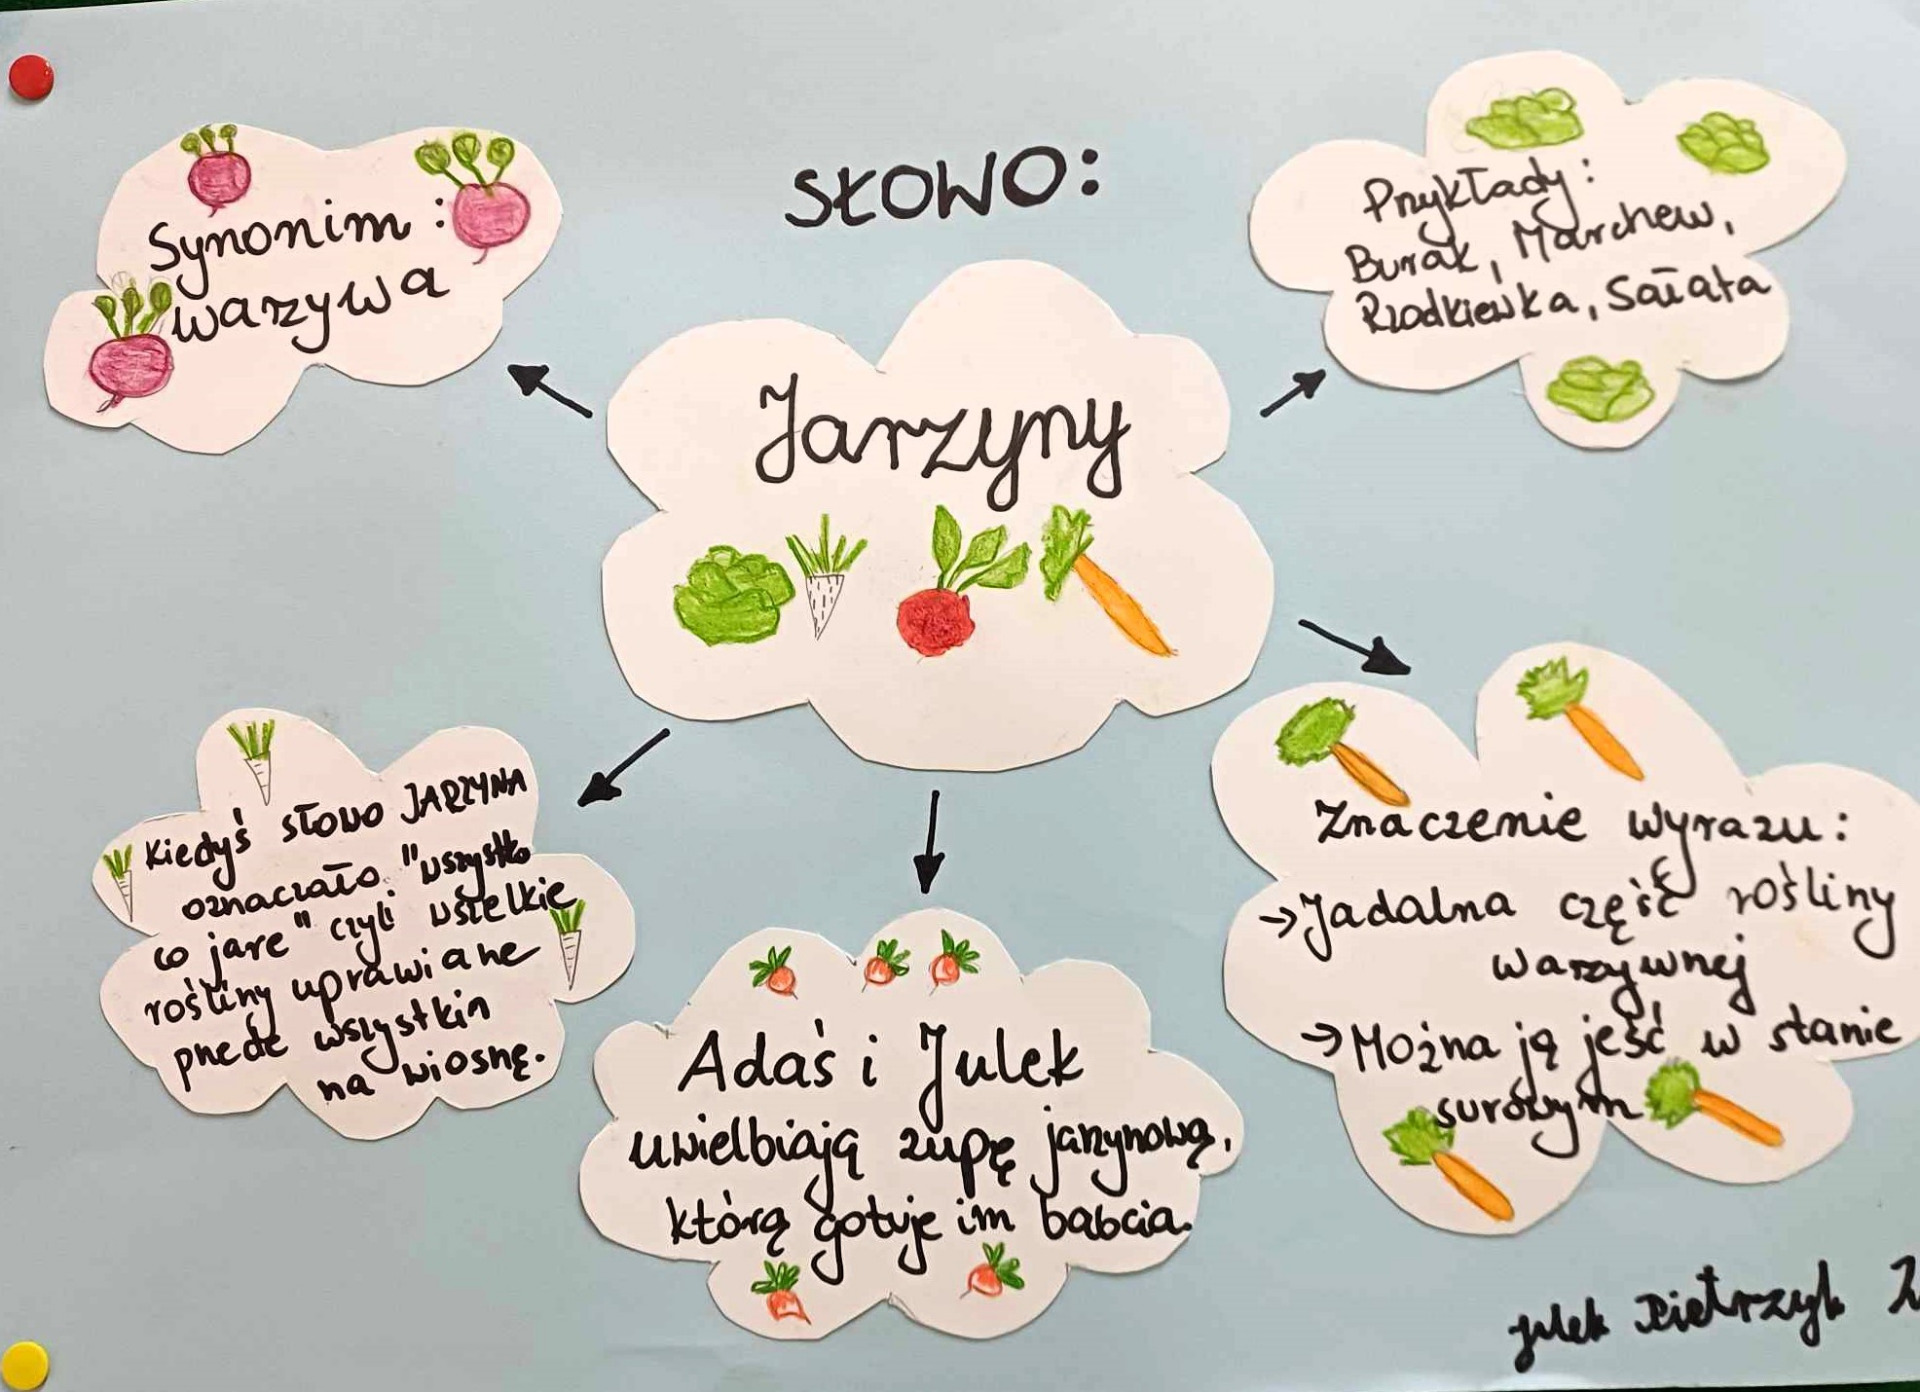 SŁOWO:
Jarzyny
Synonim:
warzywa
Przykłady:
Burak, Marchew,
Rzodkiewka, Sałata
Kiedyś słowo JARZYNA
oznaczało "wszystko
co jare" czyli wszelkie
rośliny uprawiane
przede wszystkim
na wiosnę.
Adaś i Julek
uwielbiają zupę jarzynową,
którą gotuje im babcia.
Znaczenie wyrazu:
→ Jadalna część rośliny
warzywnej
→ Można ją jeść w stanie
surowym
Julek Pietrzyk